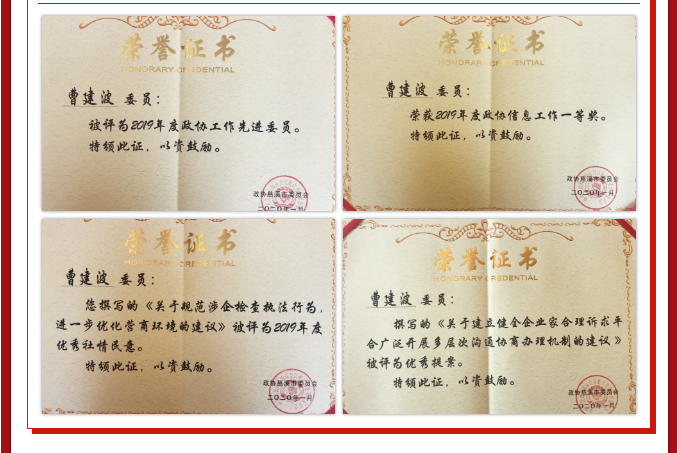 荣誉证书
HONORARY CREDENTIAL
曹建波 委员：
被评为2019年度政协工作先进委员。
特颁此证，以资鼓励。
政协慈溪市委员会
二〇二〇年一月
荣誉证书
HONORARY CREDENTIAL
曹建波 委员：
荣获2019年度政协信息工作一等奖。
特颁此证，以资鼓励。
政协慈溪市委员会
二〇二〇年一月
荣誉证书
HONORARY CREDENTIAL
曹建波 委员：
您撰写的《关于规范涉企检查执法行为，
进一步优化营商环境的建议》被评为2019年度
优秀社情民意。
特颁此证，以资鼓励。
政协慈溪市委员会
二〇二〇年一月
荣誉证书
HONORARY CREDENTIAL
曹建波 委员：
撰写的《关于建立健全企业家合理诉求平
合广泛开展多层次沟通协商办理机制的建议》
被评为优秀提案。
特颁此证，以资鼓励。
政协慈溪市委员会
二〇二〇年一月